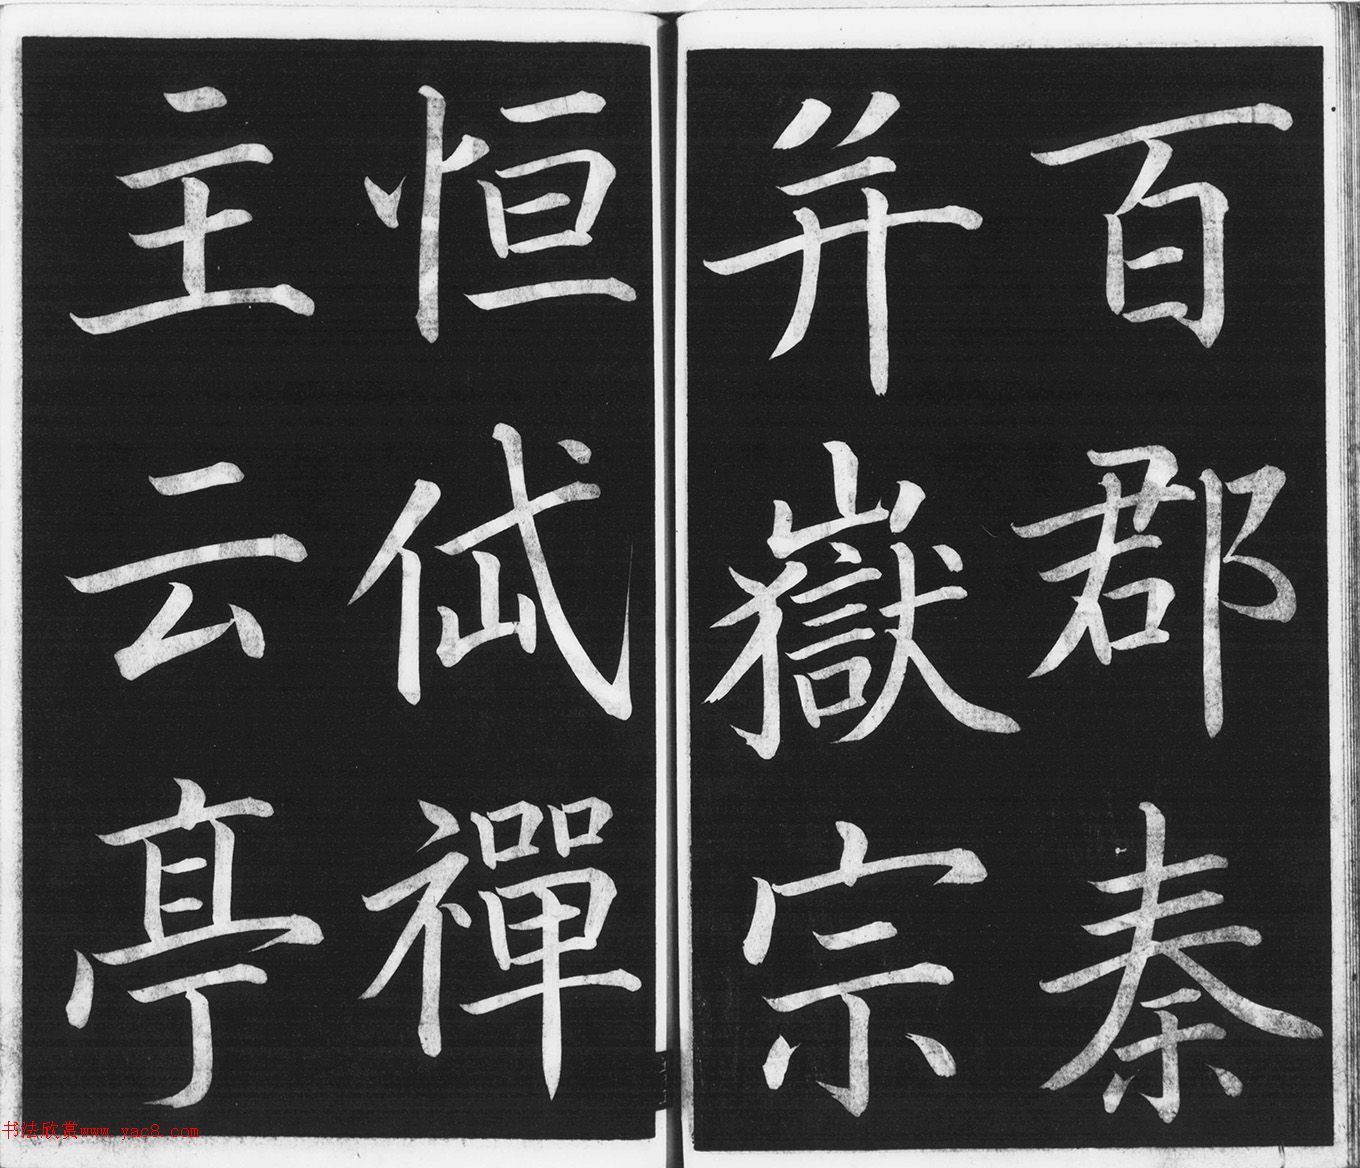 百郡秦
并嶽宗
恒岱禪
主云亭
书法欣赏www.yac8.com